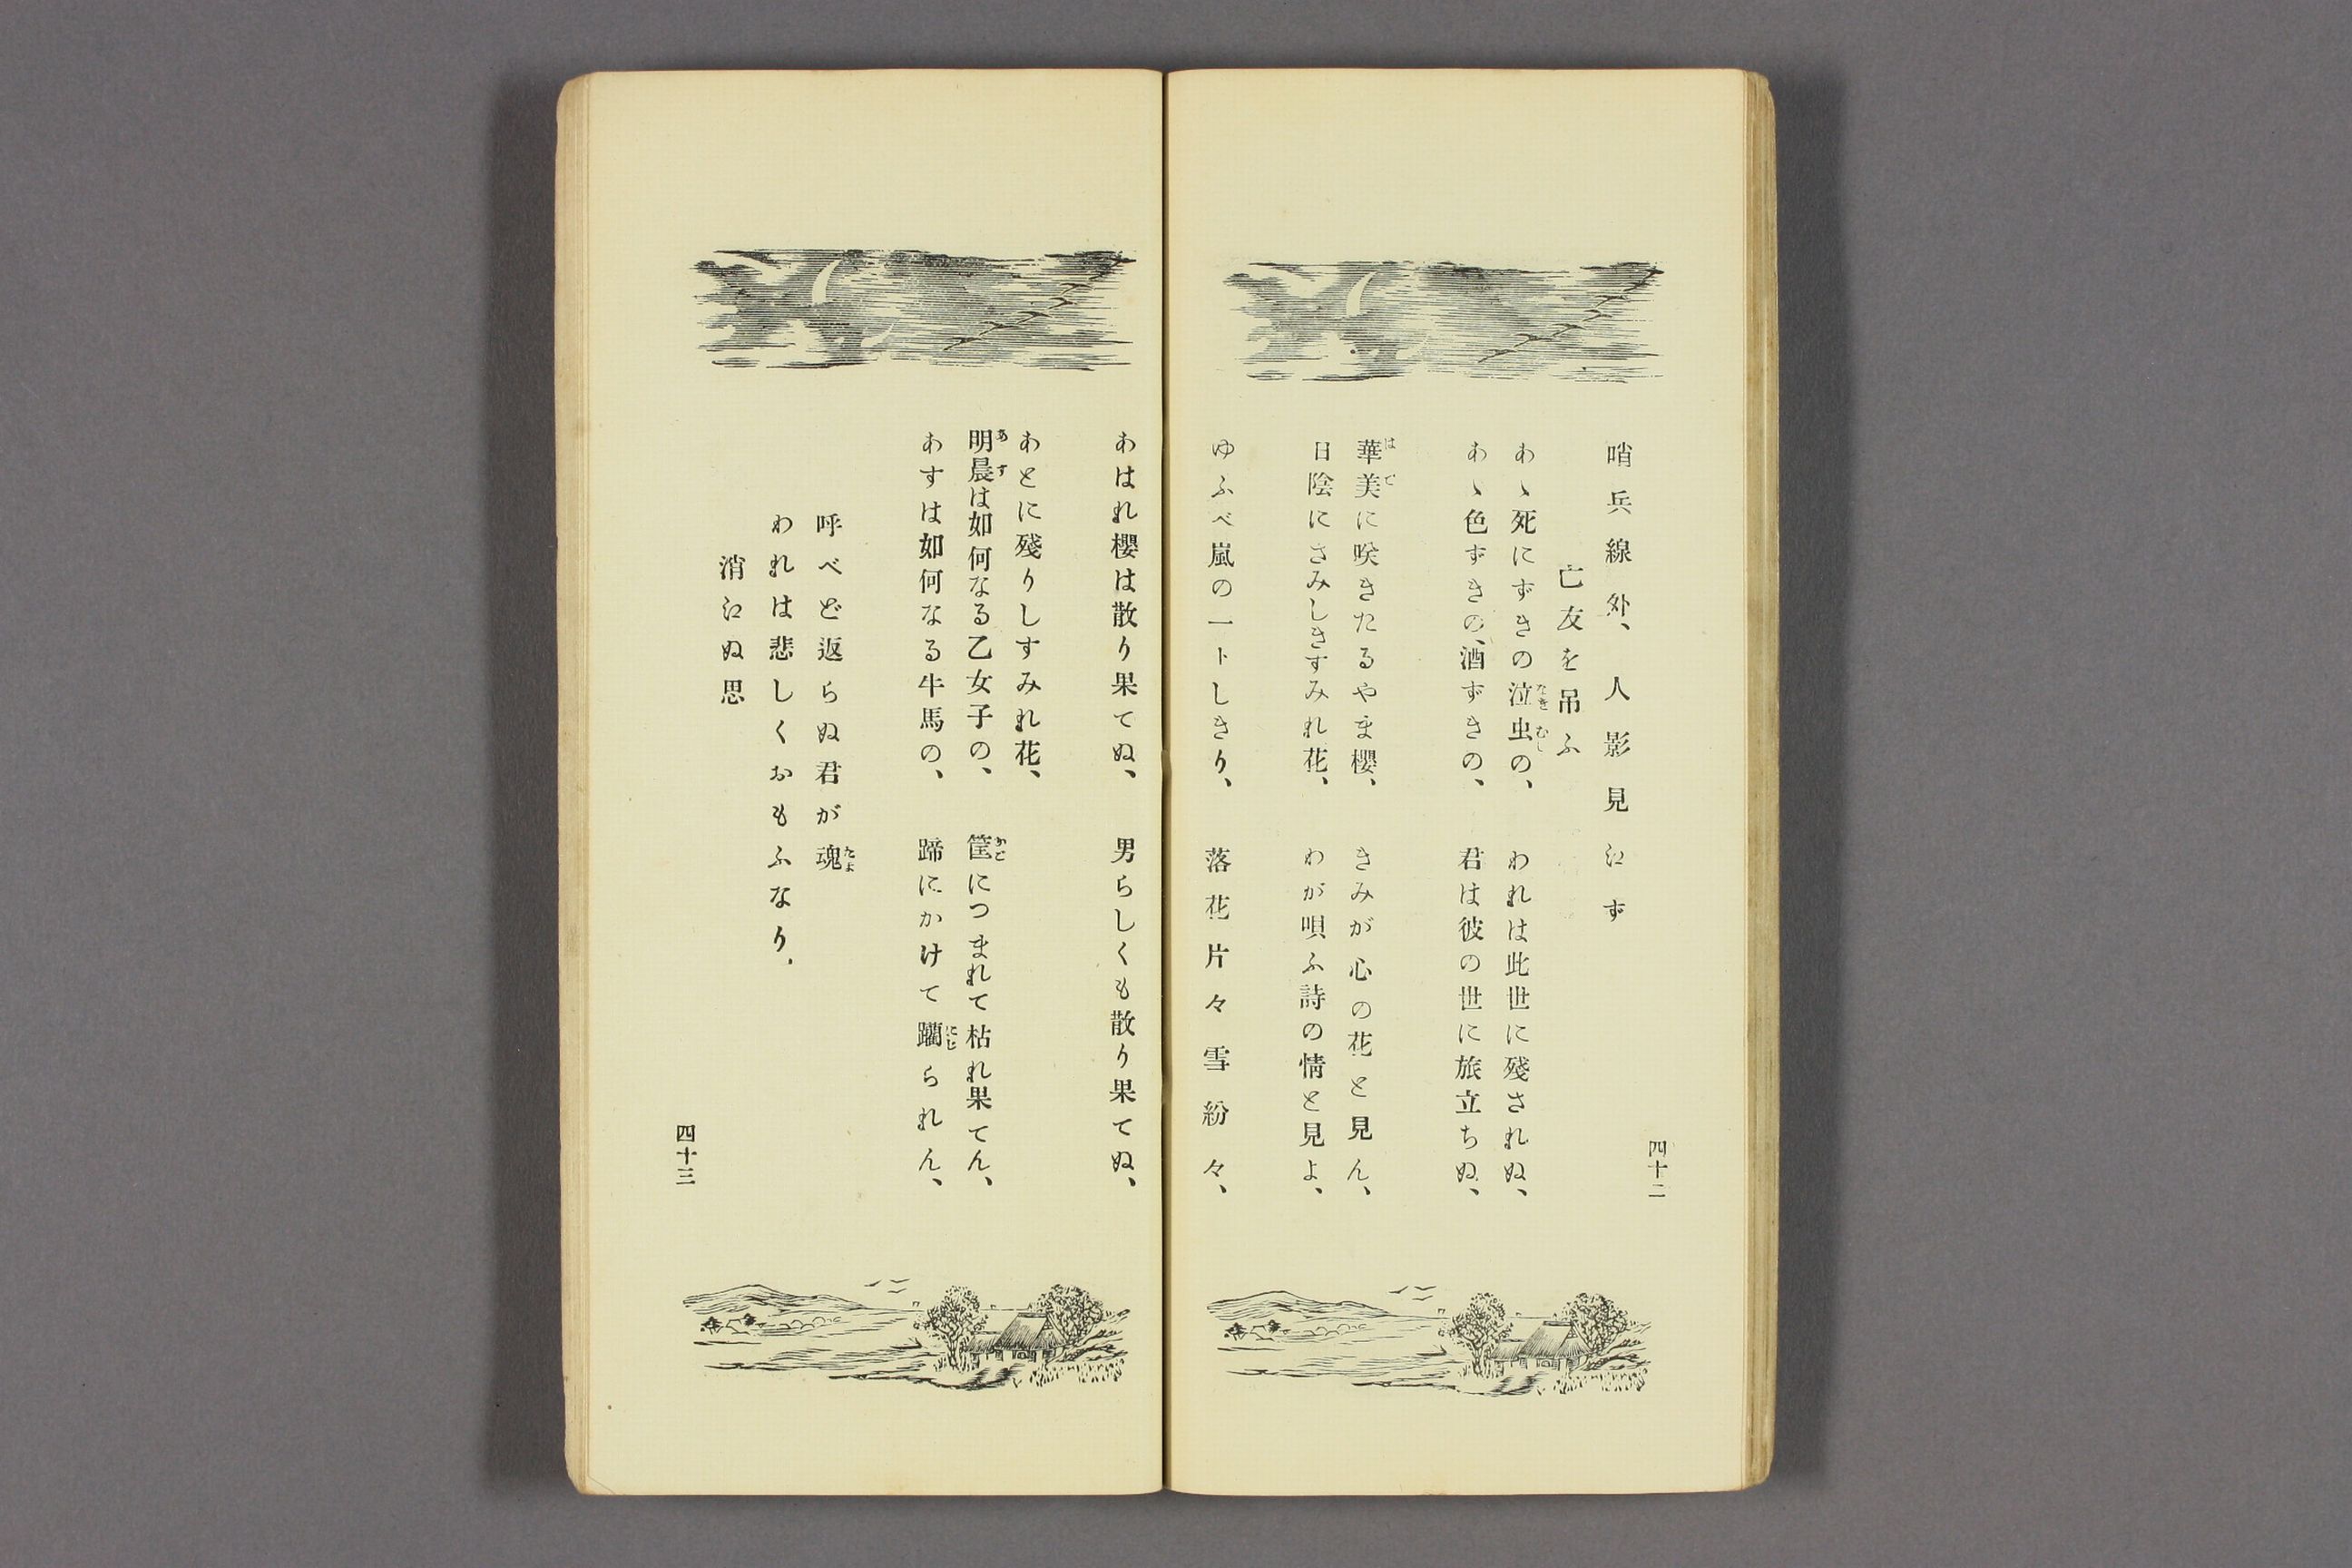 哨兵線外、人影見江ず
亡友を吊ふ
あゝ死にずきの泣虫の、 われは此世に殘されぬ、
あゝ色ずきの、酒ずきの、 君は彼の世に旅立ちぬ、
華美に咲きたるやま櫻、 きみが心の花と見ん、
日陰にさみしきすみれ花、 わが唄ふ詩の情と見よ、
ゆふべ嵐の一トしきり、 落花片々雪紛々、
四十二
あはれ櫻は散り果てぬ、 男らしくも散り果てぬ、
あとに殘りしすみれ花、
明晨は如何なる乙女子の、 筐につまれて枯れ果てん、
あすは如何なる牛馬の、 蹄にかけて躪られん、
呼べど返らぬ君が魂
われは悲しくおもふなり.
消江ぬ思
四十三